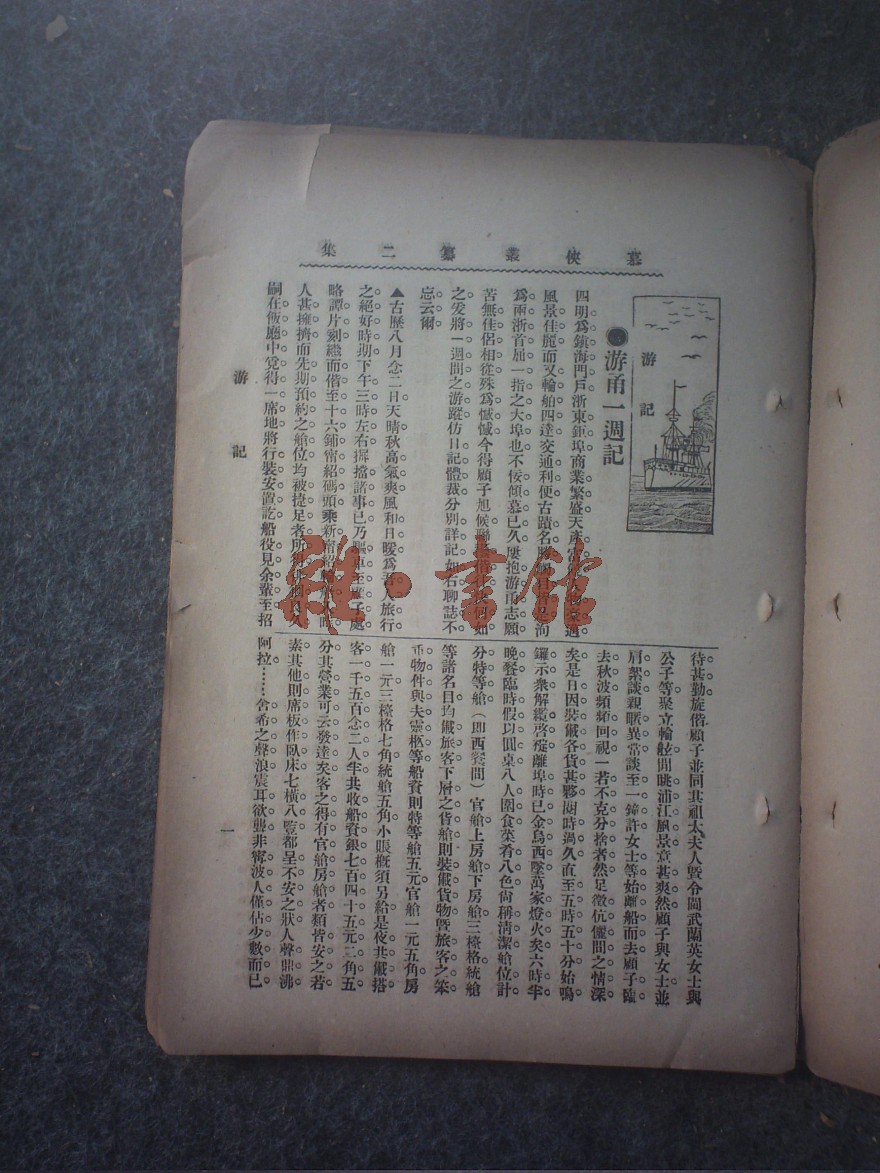 慕俠叢纂二集
游記
●游甬一週記
四明爲鎮海門戶浙東鉅埠商業繁盛天產富
風景佳麗而又輪舶四達交通利便古蹟名勝
爲兩浙首屈一指之大埠也不佞傾慕已久屢抱游甬志願
苦無佳侶相從殊爲憾憾今得顧子旭候聯
之爰將一週間之游蹤仿日記體裁分別詳記如右聊誌不
忘云爾
▲古歷八月念二日天晴秋高氣爽風和日暖爲吾人旅行
之絕好時期下午三時左右摒擋諸事已乃驅車至顧子處
略譚片刻繼而偕至十六鋪甯紹碼頭乘新甯紹
人甚擁擠而先期預約之艙位均被捷足者所
嗣在飯廳中覓得一席地將行裝安置訖船役見余輩至招
待甚勤旋偕顧子並同其祖太夫人暨令閫武蘭英女士與
公子等聚立輪舷閒眺浦江風景意甚爽然顧子與女士並
肩絮談親暱異常談至一鐘許女士等始離船而去顧子臨
去秋波頻頻回視一若不克分捨者然足徵伉儷間之情深
矣是日因裝儎各貨甚夥閱時過久直至五時五十分始鳴
鑼示衆解纜啓碇離埠時已金烏西墜萬家燈火矣六時半
晚餐臨時假以圓桌八人圍食菜肴八色尙稱淸潔艙位計
分特等艙（即西餐間）官艙上房艙下房艙三檯格統艙
等諸名目均儎旅客下層之貨艙則裝儎貨物暨旅客之笨
重物件與夫靈柩等船資則特等艙五元官艙一元五角房
艙一元三檯格七角統艙五角小賬槪須另給是夜共儎搭
客一千五百念二人半共收船資銀七百四十五元二角五
分其營業可云發達矣客之得有官艙房艙者類皆安之若
素其他則席板作臥床七橫八豎都呈不安之狀人聲鼎沸
阿拉……舍希之聲浪震耳欲聾非甯波人僅佔少數而已
游記
一
雜·書館